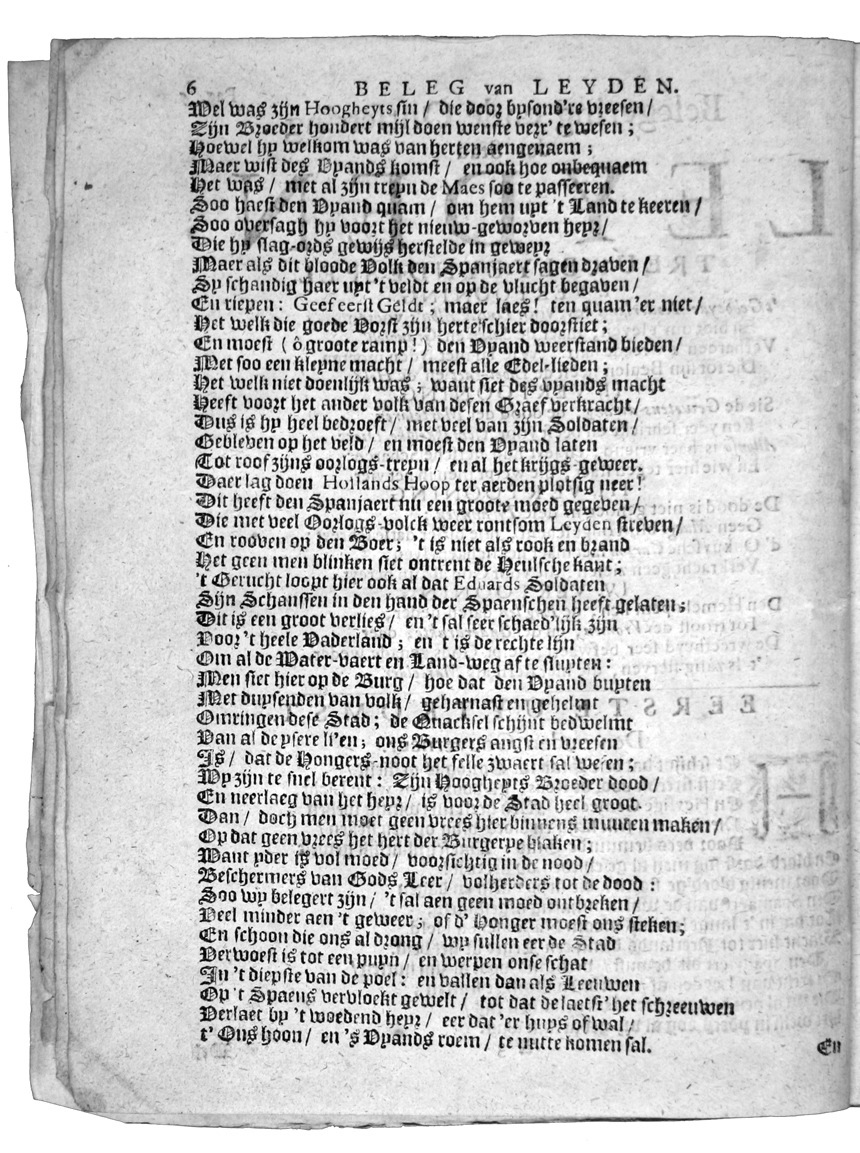 6 BELEG van LEYDEN.
Wel was zijn Hoogheyts sin / die door bysond're vreesen /
Zijn Broeder hondert mijl doen wenste verr' te wesen ;
Hoewel hy welkom was van herten aengenaem ;
Maer wist des Vyands komst / en ook hoe onbequaem
Het was / met al zijn treyn de Maes soo te passeeren.
Soo haest den Vyand quam / om hem uyt 't Land te keeren /
Soo oversagh hy voort het nieuw-geworven heyr /
Die hy slag-ords gewijs herstelde in geweyr
Maer als dit bloode Volk den Spanjaert sagen draven /
Sy schandig haer uyt 't veldt en op de vlucht begaven /
En riepen : Geef eerst Geldt ; maer laes ! ten quam 'er niet /
Het welk die goede Vorst zijn herte schier doorstiet ;
En moest ( ô groote ramp ! ) den Vyand weerstand bieden /
Met soo een kleyne macht / meest alle Edel-lieden ;
Het welk niet doenlijk was ; want siet des vyands macht
Heeft voort het ander volk van desen Graef verkracht /
Dus is hy heel bedroeft / met veel van zijn Soldaten /
Gebleven op het veld / en moest den Vyand laten
Tot roof zijns oorlogs-treyn / en al het krijgs-geweer.
Daer lag doen Hollands Hoop ter aerden plotsig neer !
Dit heeft den Spanjaert nu een groote moed gegeven /
Die met veel Oorlogs-volck weer rontsom Leyden streven /
En rooven op den Boer ; 't is niet als rook en brand
Het geen men blinken siet ontrent de Heulsche kant ;
't Gerucht loopt hier ook al dat Eduards Soldaten
Sijn Schanssen in den hand der Spaenschen heeft gelaten ;
Dit is een groot verlies / en 't sal seer schaed'lijk zijn
Voor 't heele Vaderland ; en t is de rechte lijn
Om al de Water-vaert en Land-weg af te stuyten :
Men siet hier op de Burg / hoe dat den Vyand buyten
Met duysenden van volk / geharnast en gehelmt
Omringen dese Stad ; de Quacksel schijnt bedwelmt
Van al de ysere li'en ; ons Burgers angst en vreesen
Is / dat de Hongers-noot het felle zwaert sal wesen ;
Wy zijn te snel berent : Zijn Hooghheyts Broeder dood /
En neerlaeg van het heyr / is voor de Stad heel groot.
Dan / doch men moet geen vrees hier binnens muuren maken /
Op dat geen vrees het hert der Burgerye blaken ;
Want yder is vol moed / voorsichtig in de nood /
Beschermers van Gods Leer / volherders tot de dood :
Soo wy belegert zijn / 't sal aen geen moed ontbreken /
Veel minder aen 't geweer ; of d' Honger moest ons steken ;
En schoon die ons al drong / wy sullen eer de Stad
Verwoest is tot een puyn / en werpen onse schat
In 't diepste van de poel : en vallen dan als Leeuwen
Op 't Spaens vervloekt gewelt / tot dat de laetst' het schreeuwen
Verlaet by 't woedend heyr / eer dat 'er huys of wal /
t' Ons hoon / en 's Vyands roem / te nutte komen sal.
En